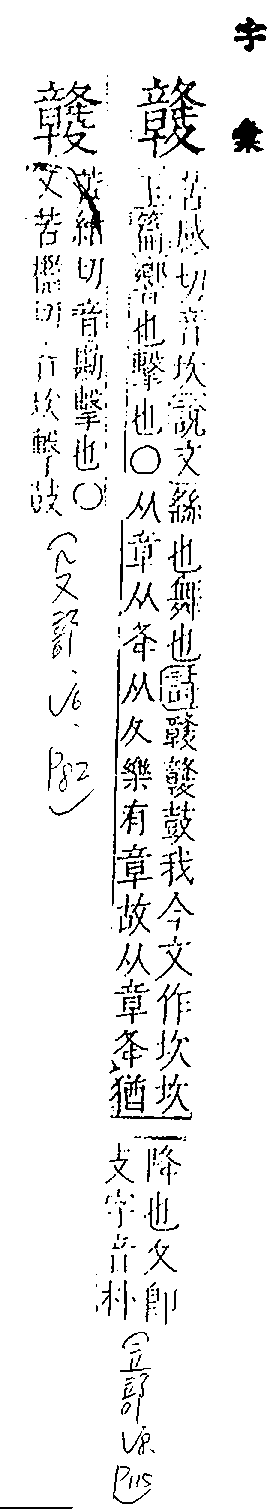 字彙
贛
苦感切音坎說文繇也舞也詩贛贛鼓我今文作坎坎
玉篇響也擊也○从章从夅从夂樂有章故从章夅猶
降也夂即
攴字音朴
贛
苦紺切音勘擊也○
又苦檻切音坎擊鼓
P115
P82